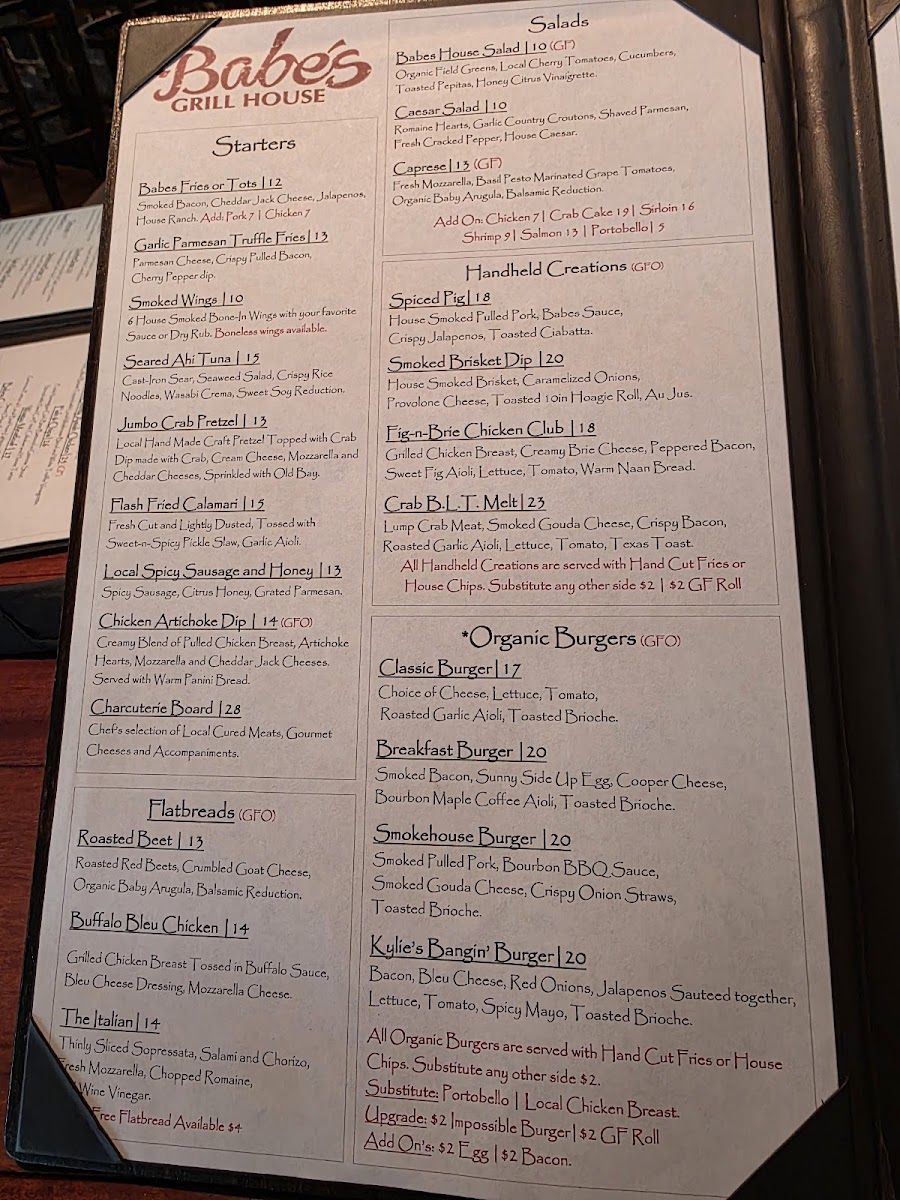 Babe's
GRILL HOUSE
Starters
Babes Fries or Tots | 12
Smoked Bacon, Cheddar Jack Cheese, Jalapenos,
House Ranch. Add: Pork 7 | Chicken 7
Garlic Parmesan Truffle Fries | 13
Parmesan Cheese, Crispy Pulled Bacon,
Cherry Pepper dip.
Smoked Wings | 10
6 House Smoked Bone-In Wings with your favorite
Sauce or Dry Rub. Boneless wings available.
Seared Ahi Tuna | 15
Cast-Iron Sear, Seaweed Salad, Crispy Rice
Noodles, Wasabi Crema, Sweet Soy Reduction.
Jumbo Crab Pretzel | 13
Local Hand Made Craft Pretzel Topped with Crab
Dip made with Crab, Cream Cheese, Mozzarella and
Cheddar Cheeses, Sprinkled with Old Bay.
Flash Fried Calamari | 15
Fresh Cut and Lightly Dusted, Tossed with
Sweet-n-Spicy Pickle Slaw, Garlic Aioli.
Local Spicy Sausage and Honey | 13
Spicy Sausage, Citrus Honey, Grated Parmesan.
Chicken Artichoke Dip | 14 (GFO)
Creamy Blend of Pulled Chicken Breast, Artichoke
Hearts, Mozzarella and Cheddar Jack Cheeses.
Served with Warm Panini Bread.
Charcuterie Board | 28
Chef's selection of Local Cured Meats, Gourmet
Cheeses and Accompaniments.
Flatbreads (GFO)
Roasted Beet | 13
Roasted Red Beets, Crumbled Goat Cheese,
Organic Baby Arugula, Balsamic Reduction.
Buffalo Bleu Chicken | 14
Grilled Chicken Breast Tossed in Buffalo Sauce,
Bleu Cheese Dressing, Mozzarella Cheese.
The Italian | 14
Thinly Sliced Sopressata, Salami and Chorizo,
Fresh Mozzarella, Chopped Romaine,
Wine Vinegar.
Free Flatbread Available $4
Salads
Babes House Salad | 10 (GF)
Organic Field Greens, Local Cherry Tomatoes, Cucumbers,
Toasted Pepitas, Honey Citrus Vinaigrette.
Caesar Salad | 10
Romaine Hearts, Garlic Country Croutons, Shaved Parmesan,
Fresh Cracked Pepper, House Caesar.
Caprese | 13 (GF)
Fresh Mozzarella, Basil Pesto Marinated Grape Tomatoes,
Organic Baby Arugula, Balsamic Reduction.
Add On: Chicken 7 | Crab Cake 19 | Sirloin 16
Shrimp 9 | Salmon 13 | Portobello | 5
Handheld Creations (GFO)
Spiced Pig | 18
House Smoked Pulled Pork, Babes Sauce,
Crispy Jalapenos, Toasted Ciabatta.
Smoked Brisket Dip | 20
House Smoked Brisket, Caramelized Onions,
Provolone Cheese, Toasted 10in Hoagie Roll, Au Jus.
Fig-n-Brie Chicken Club | 18
Grilled Chicken Breast, Creamy Brie Cheese, Peppered Bacon,
Sweet Fig Aioli, Lettuce, Tomato, Warm Naan Bread.
Crab B.L.T. Melt | 23
Lump Crab Meat, Smoked Gouda Cheese, Crispy Bacon,
Roasted Garlic Aioli, Lettuce, Tomato, Texas Toast.
All Handheld Creations are served with Hand Cut Fries or
House Chips. Substitute any other side $2 | $2 GF Roll
*Organic Burgers (GFO)
Classic Burger | 17
Choice of Cheese, Lettuce, Tomato,
Roasted Garlic Aioli, Toasted Brioche.
Breakfast Burger | 20
Smoked Bacon, Sunny Side Up Egg, Cooper Cheese,
Bourbon Maple Coffee Aioli, Toasted Brioche.
Smokehouse Burger | 20
Smoked Pulled Pork, Bourbon BBQ Sauce,
Smoked Gouda Cheese, Crispy Onion Straws,
Toasted Brioche.
Kylie's Bangin' Burger | 20
Bacon, Bleu Cheese, Red Onions, Jalapenos Sauteed together,
Lettuce, Tomato, Spicy Mayo, Toasted Brioche.
All Organic Burgers are served with Hand Cut Fries or House
Chips. Substitute any other side $2.
Substitute: Portobello | Local Chicken Breast.
Upgrade: $2 Impossible Burger | $2 GF Roll
Add On's: $2 Egg | $2 Bacon.